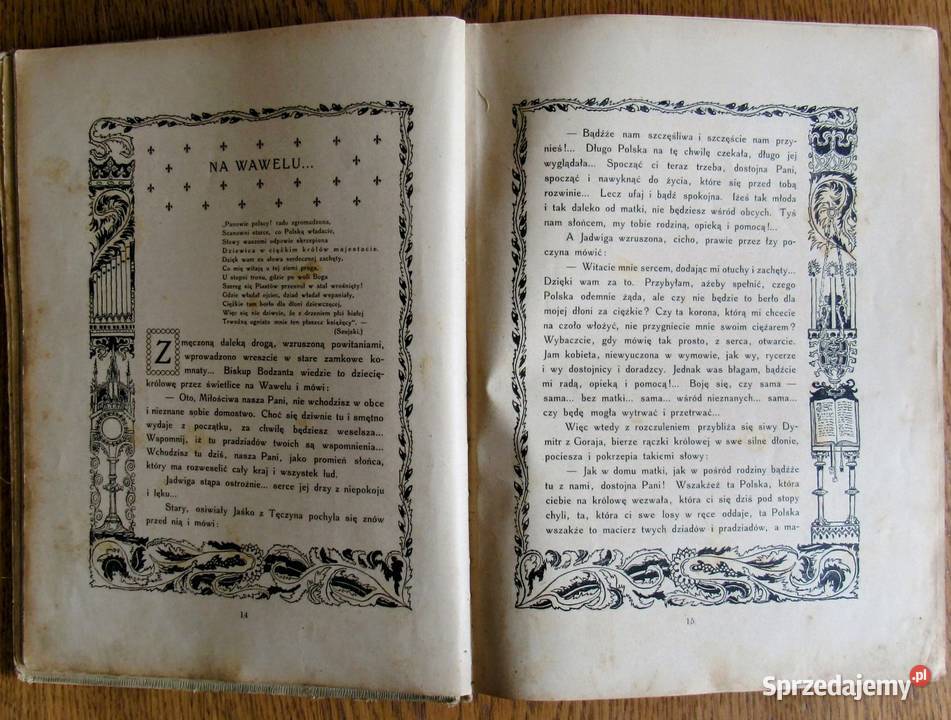 NA WAWELU...
„Panowie polscy! rado zgromadzona,
Szanowni starce, co Polską władacie,
Słowy waszemi odpowie skrzepiona
Dziewica w ciężkim królów majestacie.
Dzięk wam za słowa serdecznej zachęty,
Co mię witają u tej ziemi proga,
U stopni tronu, gdzie po woli Boga
Szereg się Piastów przesnuł w stal wrośnięty!
Gdzie władał ojciec, dziad władał wspaniały,
Ciężkie tam berło dla dłoni dziewczęcej,
Więc się nie dziwcie, że z drżeniem płci białej
Trwożną ugniata mnie ten płaszcz książęcy“. —
(Szujski.)
Zmęczoną daleką drogą, wzruszoną powitaniami,
wprowadzono wreszcie w stare zamkowe kom-
naty... Biskup Bodzanta wiedzie to dziecię-
królowę przez świetlice na Wawelu i mówi:
— Oto, Miłościwa nasza Pani, nie wchodzisz w obce
i nieznane sobie domostwo. Choć się dziwnie tu i smętno
wydaje z początku, za chwilę będziesz weselsza...
Wspomnij, iż tu pradziadów twoich są wspomnienia...
Wchodzisz tu dziś, nasza Pani, jako promień słońca,
który ma rozweselić cały kraj i wszystek lud.
Jadwiga stąpa ostrożnie... serce jej drży z niepokoju
i lęku...
Stary, osiwiały Jaśko z Tęczyna pochyla się znów
przed nią i mówi:
14
— Bądźże nam szczęśliwa i szczęście nam przy-
nieś!... Długo Polska na tę chwilę czekała, długo jej
wyglądała... Spocząć ci teraz trzeba, dostojna Pani,
spocząć i nawyknąć do życia, które się przed tobą
rozwinie... Lecz ufaj i bądź spokojna. Iżeś tak młoda
i tak daleko od matki, nie będziesz wśród obcych. Tyś
nam słońcem, my tobie rodziną, opieką i pomocą!...
A Jadwiga wzruszona, cicho, prawie przez łzy po-
czyna mówić:
— Witacie mnie sercem, dodając mi otuchy i zachęty...
Dzięki wam za to. Przybyłam, ażeby spełnić, czego
Polska odemnie żąda, ale czy nie będzie to berło dla
mojej dłoni za ciężkie? Czy ta korona, którą mi chcecie
na czoło włożyć, nie przygniecie mnie swoim ciężarem?
Wybaczcie, gdy mówię tak prosto, z serca, otwarcie.
Jam kobieta, niewyuczona w wymowie, jak wy, rycerze
i wy dostojnicy i doradzcy. Jednak was błagam, bądźcie
mi radą, opieką i pomocą!... Boję się, czy sama —
sama... bez matki... sama... wśród nieznanych... sama...
czy będę mogła wytrwać i przetrwać...
Więc wtedy z rozczuleniem przybliża się siwy Dy-
mitr z Goraja, bierze rączki królowej w swe silne dłonie,
pociesza i pokrzepia takiemi słowy:
— Jak w domu matki, jak w pośród rodziny bądźże
tu z nami, dostojna Pani! Wszakżeż ta Polska, która
ciebie na królowę wezwała, która ci się dziś pod stopy
chyli, ta, która ci swe losy w ręce oddaje, ta Polska
wszakże to macierz twych dziadów i pradziadów, a ma-
15
Sprzedajemy.pl